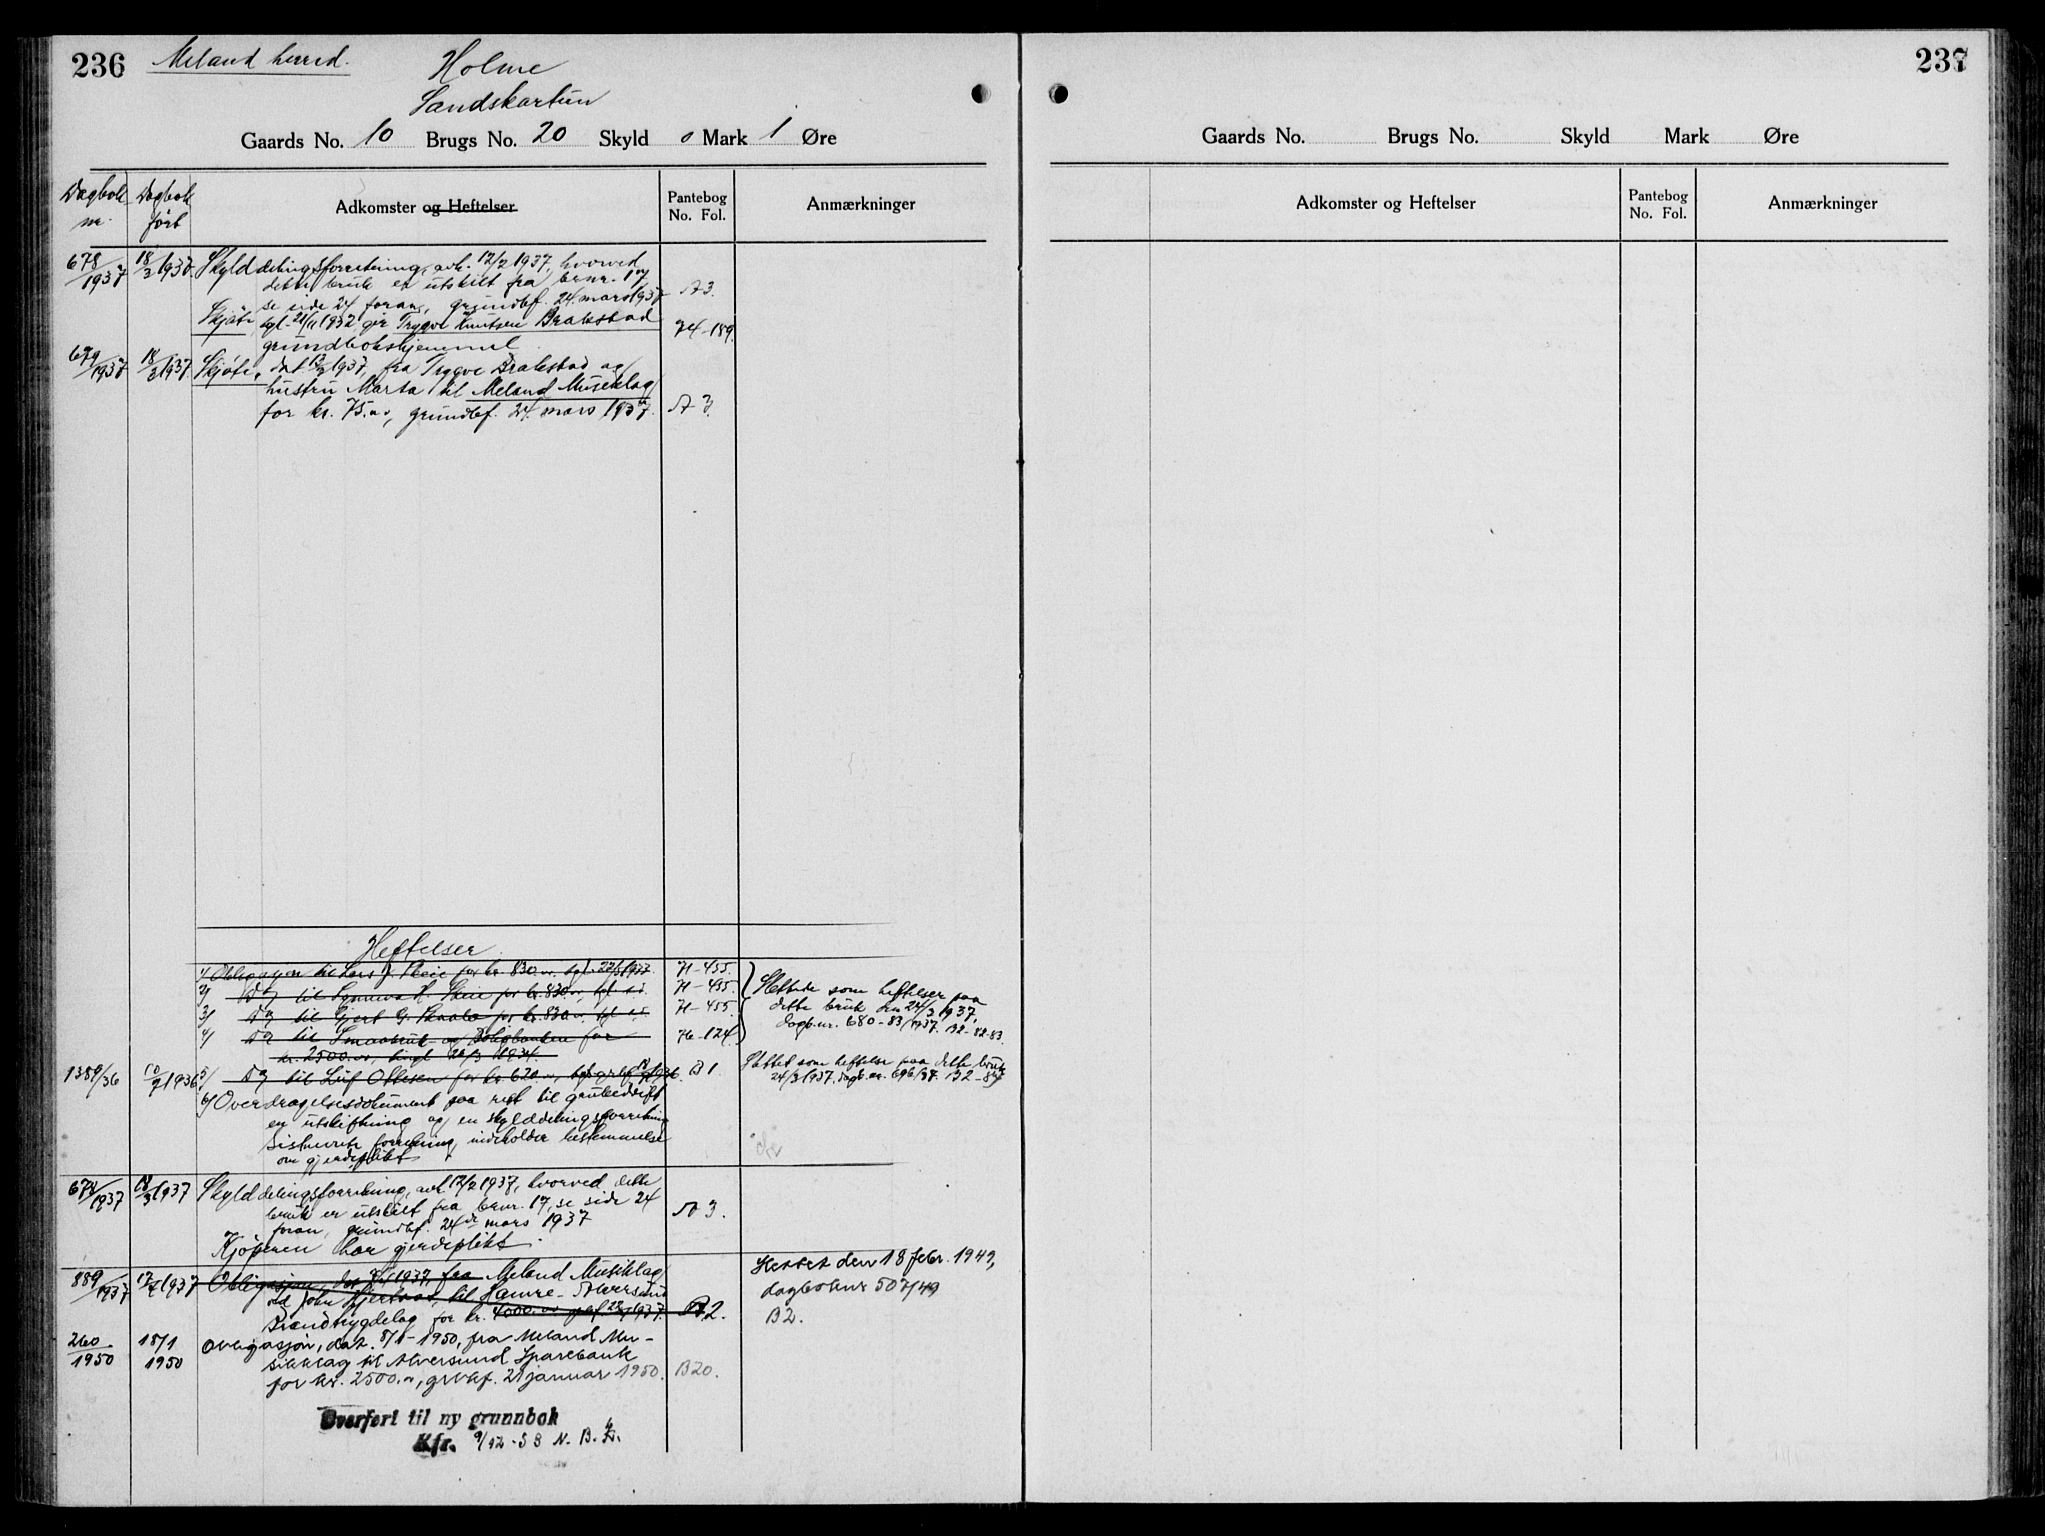 236
Meland herred.
Holme
Sandskartun
Gaards No. 10 Brugs No. 20 Skyld 0 Mark 1 Øre
Dagbok nr.
Dagbok ført
Adkomster og Heftelser
Pantebog No. Fol.
Anmærkninger
678/1937 18/3 1937 Skylddelingsforretning, avh. 12/2 1937, hvorved
dette bruk er utskilt fra brnr. 17
se side 24 foran, grundbf. 24. mars 1937 A 3.
Skjøte tgl. 21/11 1932 gir Trygve Knutsen Brakstad 74-189.
grundbokshjemmel
679/1937 18/3 1937 Skjøte, dat 12/2 1937, fra Trygve Brakstad og
hustru Marta til Meland Musiklag
for kr. 75.00, grundbf. 24. mars 1937. A 3.
Heftelser
1/ Obligasjon til Lars J. Skeie for kr. 830.00. tgl. 71-455.
2/ Do til H. Skeie for kr. 830.00, tgl. s.d. 71-455.
3/ Do til Gjert G. for kr. 830.00, tgl. s.d. 71-455.
4/ Do til Smaabruk og Boligbanken for 76-124.
kr. 2500.00, tingl 20/3 1934.
Slettede som heftelser paa
dette bruk den 24/3 1937,
dagb.nr. 680-83/1937. B2-82-83.
1389/36 10/9 1936 5/ Do til Leif Ottesen for kr. 620.00, B 1.
Slettet som heftelse paa dette bruk
24/3 1937, dagb.nr. 696/37. B2-84
6/ Overdragelsesdokument paa rett til grubedrift
en utskiftning og en skylddelingsforretning
Sistnevnte forretning indeholder bestemmelse
om gjerdeplikt
678/1937 18/3 1937 Skylddelingsforretning, avh 12/2 1937, hvorved dette
bruk er utskilt fra brnr. 17, se side 24
foran, grundbf. 24de mars 1937 A 3.
Kjøperen har gjerdeplikt.
889/1937 1937 Obligasjon, dat 1937, fra Meland Musiklag
ved John til Hamre - Alversund
Brandtrygdelag for kr. 4000.00 1937. A2.
Slettet den 18 febr. 1949,
dagboknr 507/49
B2.
260/1950 18/1 1950 Obligasjon, dat. 8/1-1950, fra Meland Mu-
sikklag til Alversund Sparebank
for kr. 2500.00, grbkf. 21 januar 1950. B20.
Overført til ny grunnbok
Kfr. 9/12-58 N. B.
237
Gaards No. Brugs No. Skyld Mark Øre
Adkomster og Heftelser
Pantebog No. Fol.
Anmærkninger